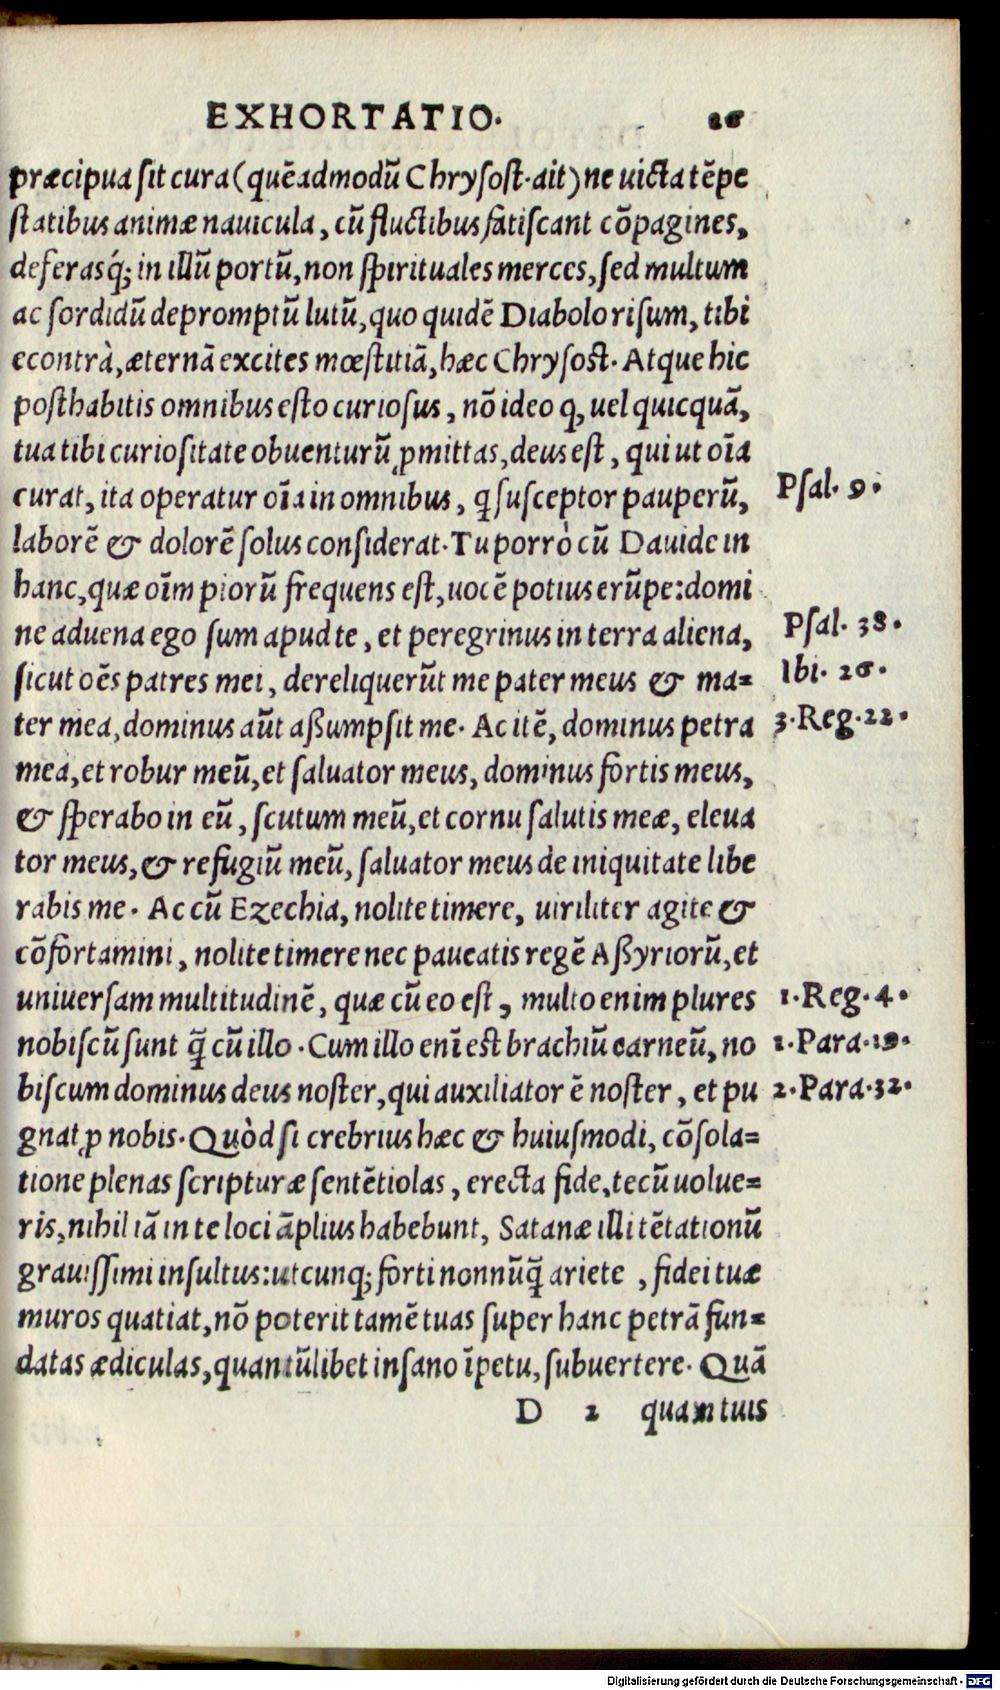 EXHORTATIO. 26
præcipua sit cura (quẽadmodũ Chrysost. ait) ne uicta tẽpe
statibus animæ nauicula, cũ fluctibus fatiscant cõpagines,
deferasq́; in illũ portũ, non spirituales merces, sed multum
ac sordidũ depromptũ lutũ, quo quidẽ Diabolo risum, tibi
econtrà, æternã excites mœstitiã, hæc Chrysost. Atque hic
posthabitis omnibus esto curiosus, nõ ideo ꝙ, uel quicquã,
tua tibi curiositate obuenturũ ꝓmittas, deus est, qui ut oĩa
curat, ita operatur oĩa in omnibus, ꝗ susceptor pauperũ,
Psal. 9.
laborẽ & dolorẽ solus considerat. Tu porrò cũ Dauide in
hanc, quæ oĩm piorũ frequens est, uocẽ potius erũpe: domi
ne aduena ego sum apud te, et peregrinus in terra aliena,
Psal. 38.
sicut oẽs patres mei, dereliquerũt me pater meus & ma=
Ibi. 26.
ter mea, dominus aũt aßumpsit me. Ac itẽ, dominus petra
3. Reg. 22.
mea, et robur meũ, et saluator meus, dominus fortis meus,
& sperabo in eũ, scutum meũ, et cornu salutis meæ, eleua
tor meus, & refugiũ meũ, saluator meus de iniquitate libe
rabis me. Ac cũ Ezechia, nolite timere, uiriliter agite &
cõfortamini, nolite timere nec paueatis regẽ Aßyriorũ, et
uniuersam multitudinẽ, quæ cũ eo est, multo enim plures
1. Reg. 4.
nobiscũ sunt ꝗ̃ cũ illo. Cum illo enĩ est brachiũ carneũ, no
1. Para. 19.
biscum dominus deus noster, qui auxiliator ẽ noster, et pu
2. Para. 32.
gnat ꝓ nobis. Quòd si crebrius hæc & huiusmodi, cõsola=
tione plenas scripturæ sentẽtiolas, erecta fide, tecũ uolue=
ris, nihil iã in te loci ãplius habebunt, Satanæ illi tẽtationũ
grauissimi insultus: utcunq; forti nonnũꝗ̃ ariete, fidei tuæ
muros quatiat, nõ poterit tamẽ tuas super hanc petrã fun=
datas ædiculas, quantũlibet insano ĩpetu, subuertere. Quã
D 2 quam tuis
Digitalisierung gefördert durch die Deutsche Forschungsgemeinschaft - DFG